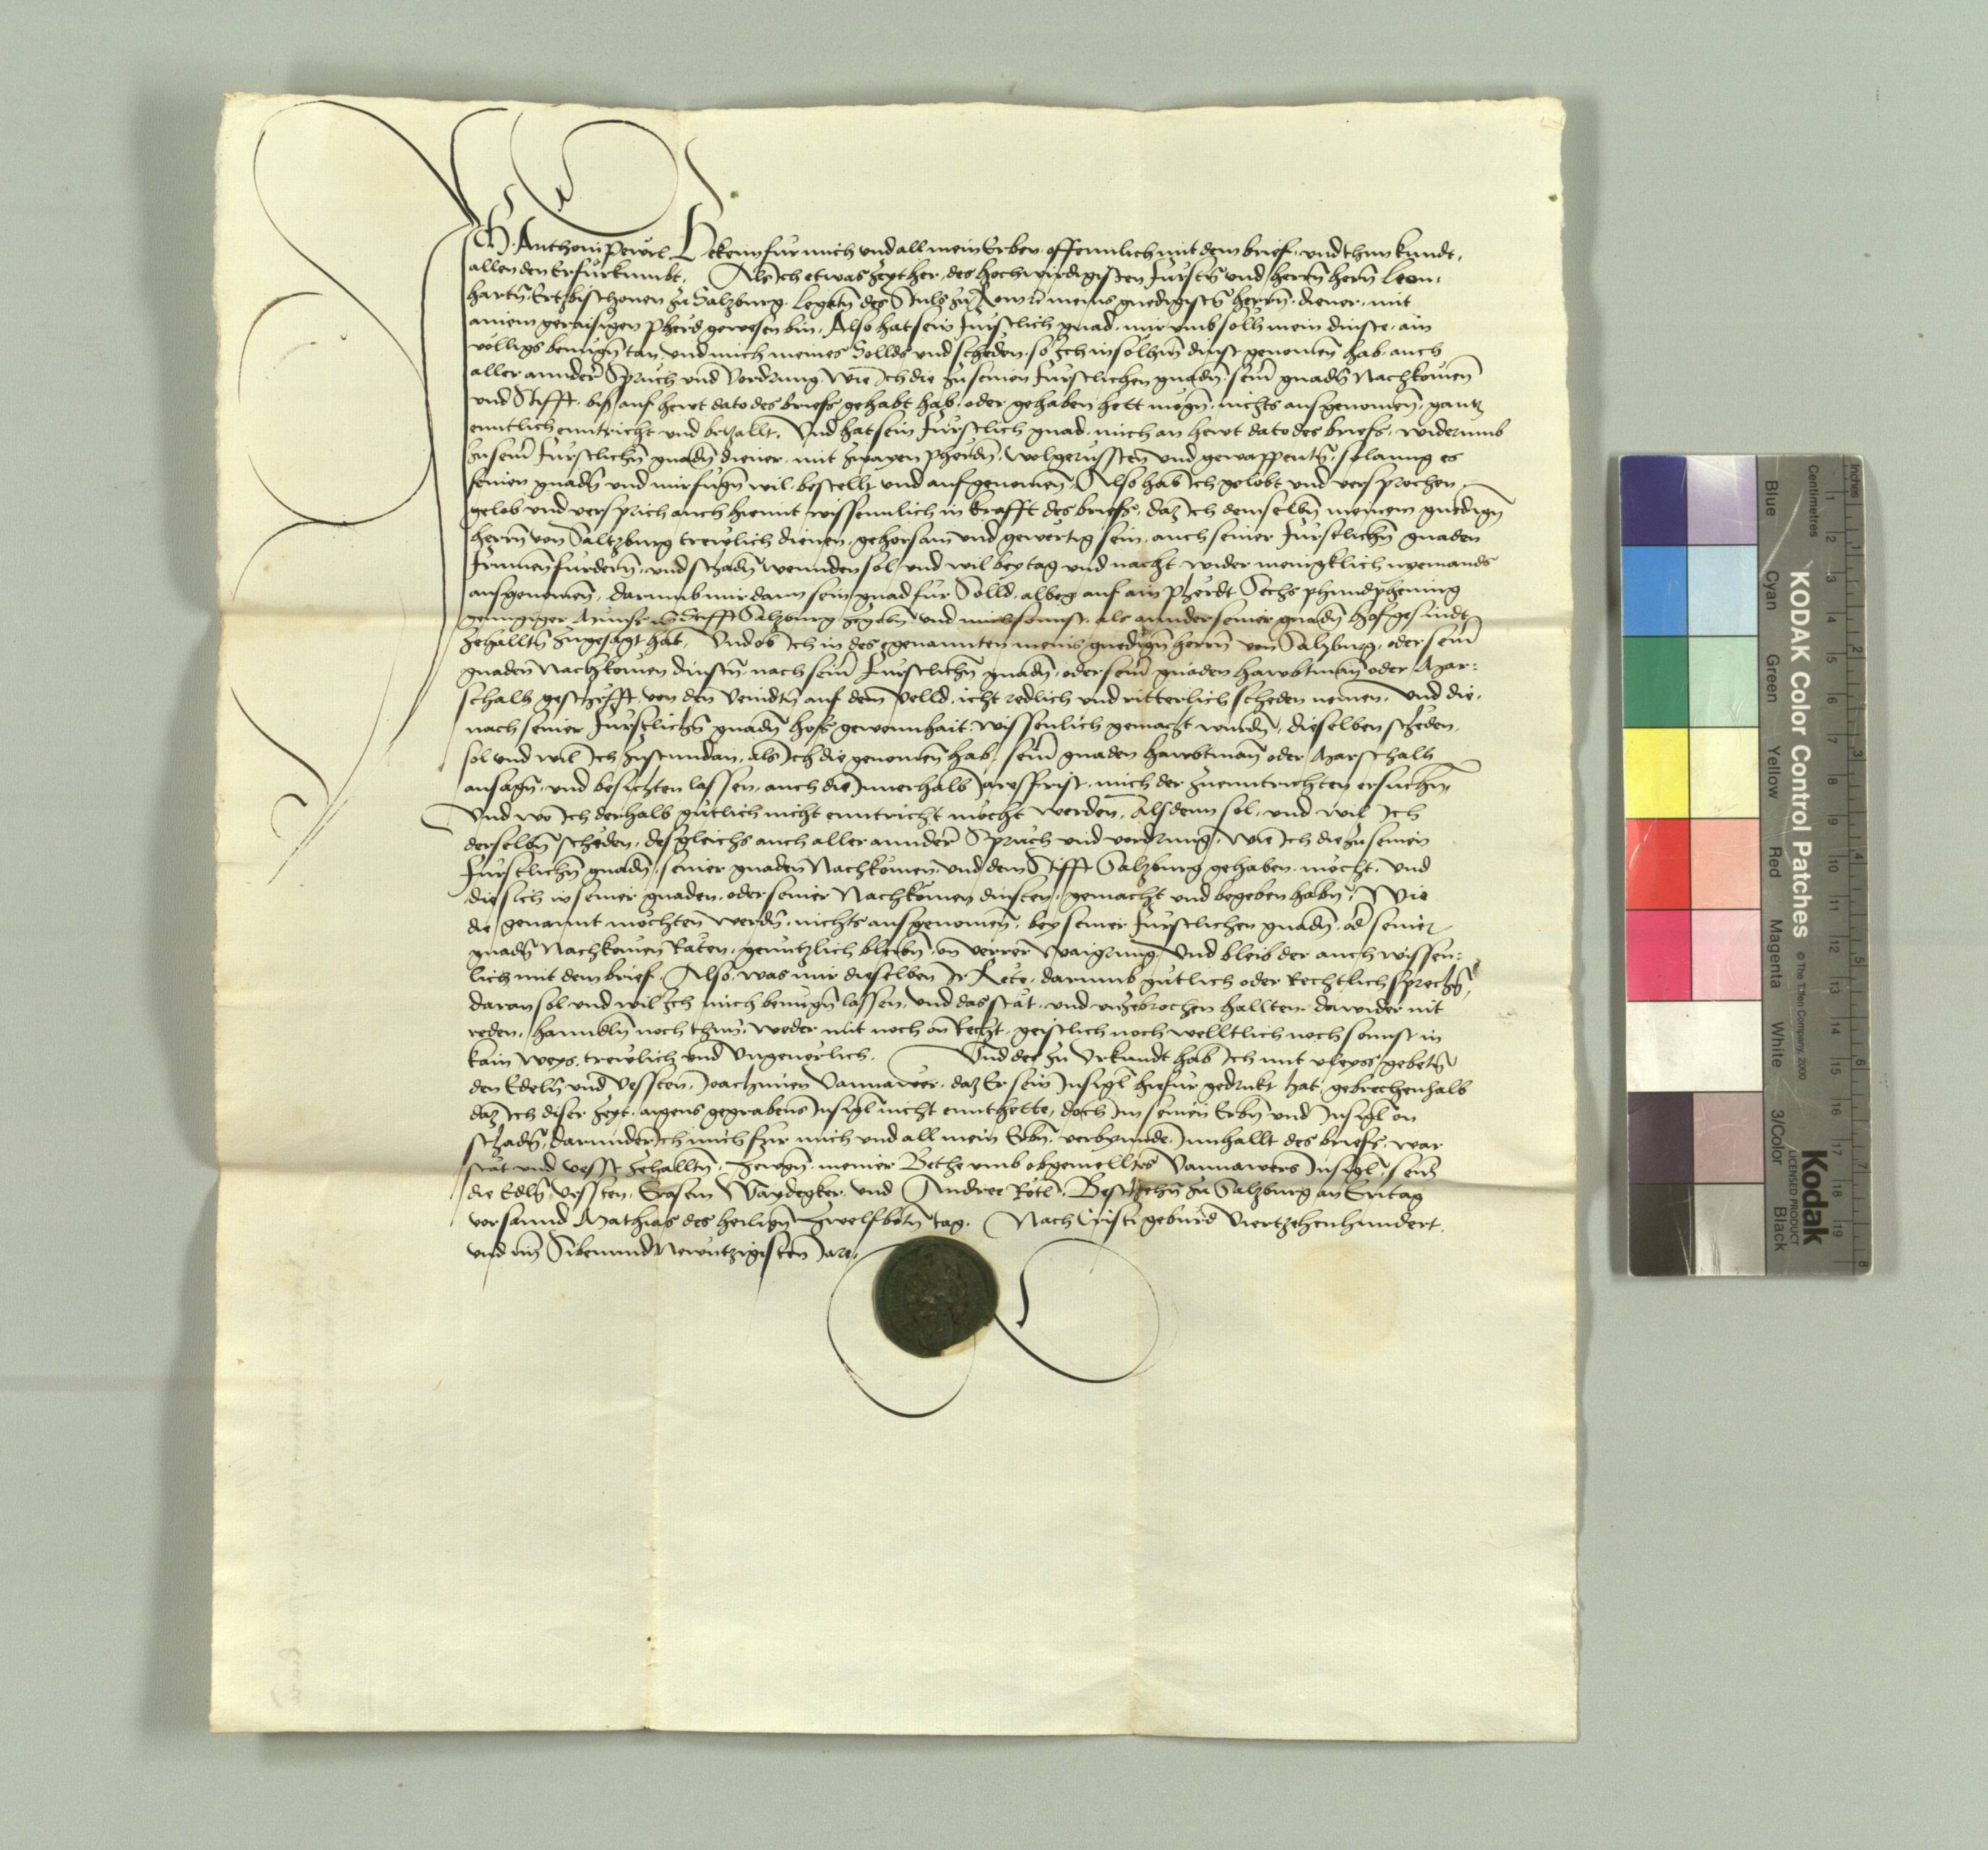 Ich Anthoni Perwl Bekenn fur mich vnd all mein Erben offennlich mit dem brief, vnd thun kundt,
allen den Er furkumbt, Als Ich etwas Zeyther, des hochwirdigisten Fursten vnd herrn hern Leon-
hartn Ertzbischouen zu Salzburg Legatn des Stuls zu Rom meins gnedigistn herrn, diener, mit
ainem geraisigen Pherd gewesen bin, Also hat sein Furstlich gnad, mir vmb solh mein dinste, ain
völligs benugn tan, vnd mich meines Sollds vnd scheden, so Ich in solhem dinst genomen hab, auch
aller annder Spruch vnd Vordrung, wie Ich die zu seinen Furstlichen gnadn, sein gnadn Nachkomen
vnd Stifft, biß auf hewt dato des briefs gehabt hab, oder gehaben hett mogn, nichts ausgenomen, gantz
enntlich enntricht vnd betzallt, Vnd hat sein Furstlich gnad, mich an hewt dato des briefs, widerumb
zu sein Furstlichn gnadn diener, mit zwayen Pherdn, wolgerussten vnd gewappentn, solanng es
seinen gnadn vnd mir fugn wil, bestellt vnd aufgenomen, Also hab Ich gelobt vnd versprochen,
gelob vnd versprich auch hiemit wissennlich in krafft des briefs, daz Ich demselbn meinem gnedign
herrn von Saltzburg trewlich dienen, gehorsam vnd gewertig sein, auch seiner Furstlichn gnaden
Frumen furdern, vnd schadn wennden sol, vnd wil bey tag vnd nacht, wider menigklich nyemands
ausgenomen, darumb mir dann sein gnad fur Solld, albeg auf ain Pherdt Sechs phundt phening
genngiger Munss Stifft Salzburg zegebn, vnd mich sonnst, als annder seiner gnadn hofgesindt
zehalltn zugesagt hat, Vnd ob Ich in des egenannten meins gnedign herrn von Salzburg, oder sein
gnaden Nachkomen dinstn, nach sein Furstlichn gnadn, oder sein gnaden hawbtman oder Mar-
schalh geschefft, von den Veindtn auf dem Velld, icht redlich vnd ritterlich scheden nemen, vnd die,
nach seiner Furstlichn gnadn hofs gewonnhait, wissenlich gemacht wurdn, dieselben scheden,
sol vnd wil Ich zustundan, als Ich die genomen hab, sein gnaden hawbtman oder Marschalh
ansagn, vnd besichten lassen, auch die Innerhalb Jarssfrist, mich der zuenntrichten ersuchn,
Vnd wo Ich derhalb gutlich nicht enntricht mocht werden, Alsdenn sol, vnd wil Ich
derselbn scheden, desgleichs auch aller annder Spruch vnd vordrung, wie Ich die zu seinen
Furstlichn gnadn, seiner gnaden Nachkomen, vnd dem Stifft Salzburg gehaben mocht, vnd
die sich in seiner gnaden, oder seiner Nachkomen dinsten, gemacht vnd begeben habn, Wie
die genannt mochten werdn, nichts ausgenomen, bey seiner Furstlichen gnadn, oder seiner
gnadn Nachkomen Räten, genntzlich bleibn, on verrer Waigrung, Vnd bleib der auch wissen-
lich mit dem brief, Also, was mir dieselben Ir Rete, darumb gutlich oder Rechtlich sprechn,
daran sol vnd wil Ich mich benugn lassen, vnd das stät, vnd vnzebrochen hallten, dawider nit
reden, hanndln noch thun, weder mit noch on Recht, geistlich noch welltlich noch sonnst in
kain weys, trewlich vnd Vngeuerlich, Vnd des zu Vrkundt hab Ich mit vleyss gebetn
den Edeln vnd Vessten, Joachimen Vannawer, daz Er sein Insigl hiefur gedrukt hat, gebrechenhalb
daz Ich diser zeyt, aigens gegrabens Insigl nicht ennthette, doch im seinen Erbn vnd Insigl on
schadn, darunder Ich mich fur mich vnd all mein Erbn, verbynnde, Innhallt des briefs, war
stät vnd vesst zehalltn, Zewgn meiner Bethe vmb obgemelltes Vannawers Insigl, sein
die Edln Vessten, Erasem Waydegker, vnd Andree Rötl, Beschehn zu Salzburg an Eritag
vor sannd Mathias des heilign Zwelfboten tag, Nach Cristi geburd Viertzehenhundert,
vnd im Sibenundnewntzigisten Jare,
KODAK Color Control Patches
© The Tiffen Company, 2000
Kodak
LICENSED PRODUCT
Inches
Centimetres
Blue
Cyan
Green
Yellow
Red
Magenta
White
3/Color
Black